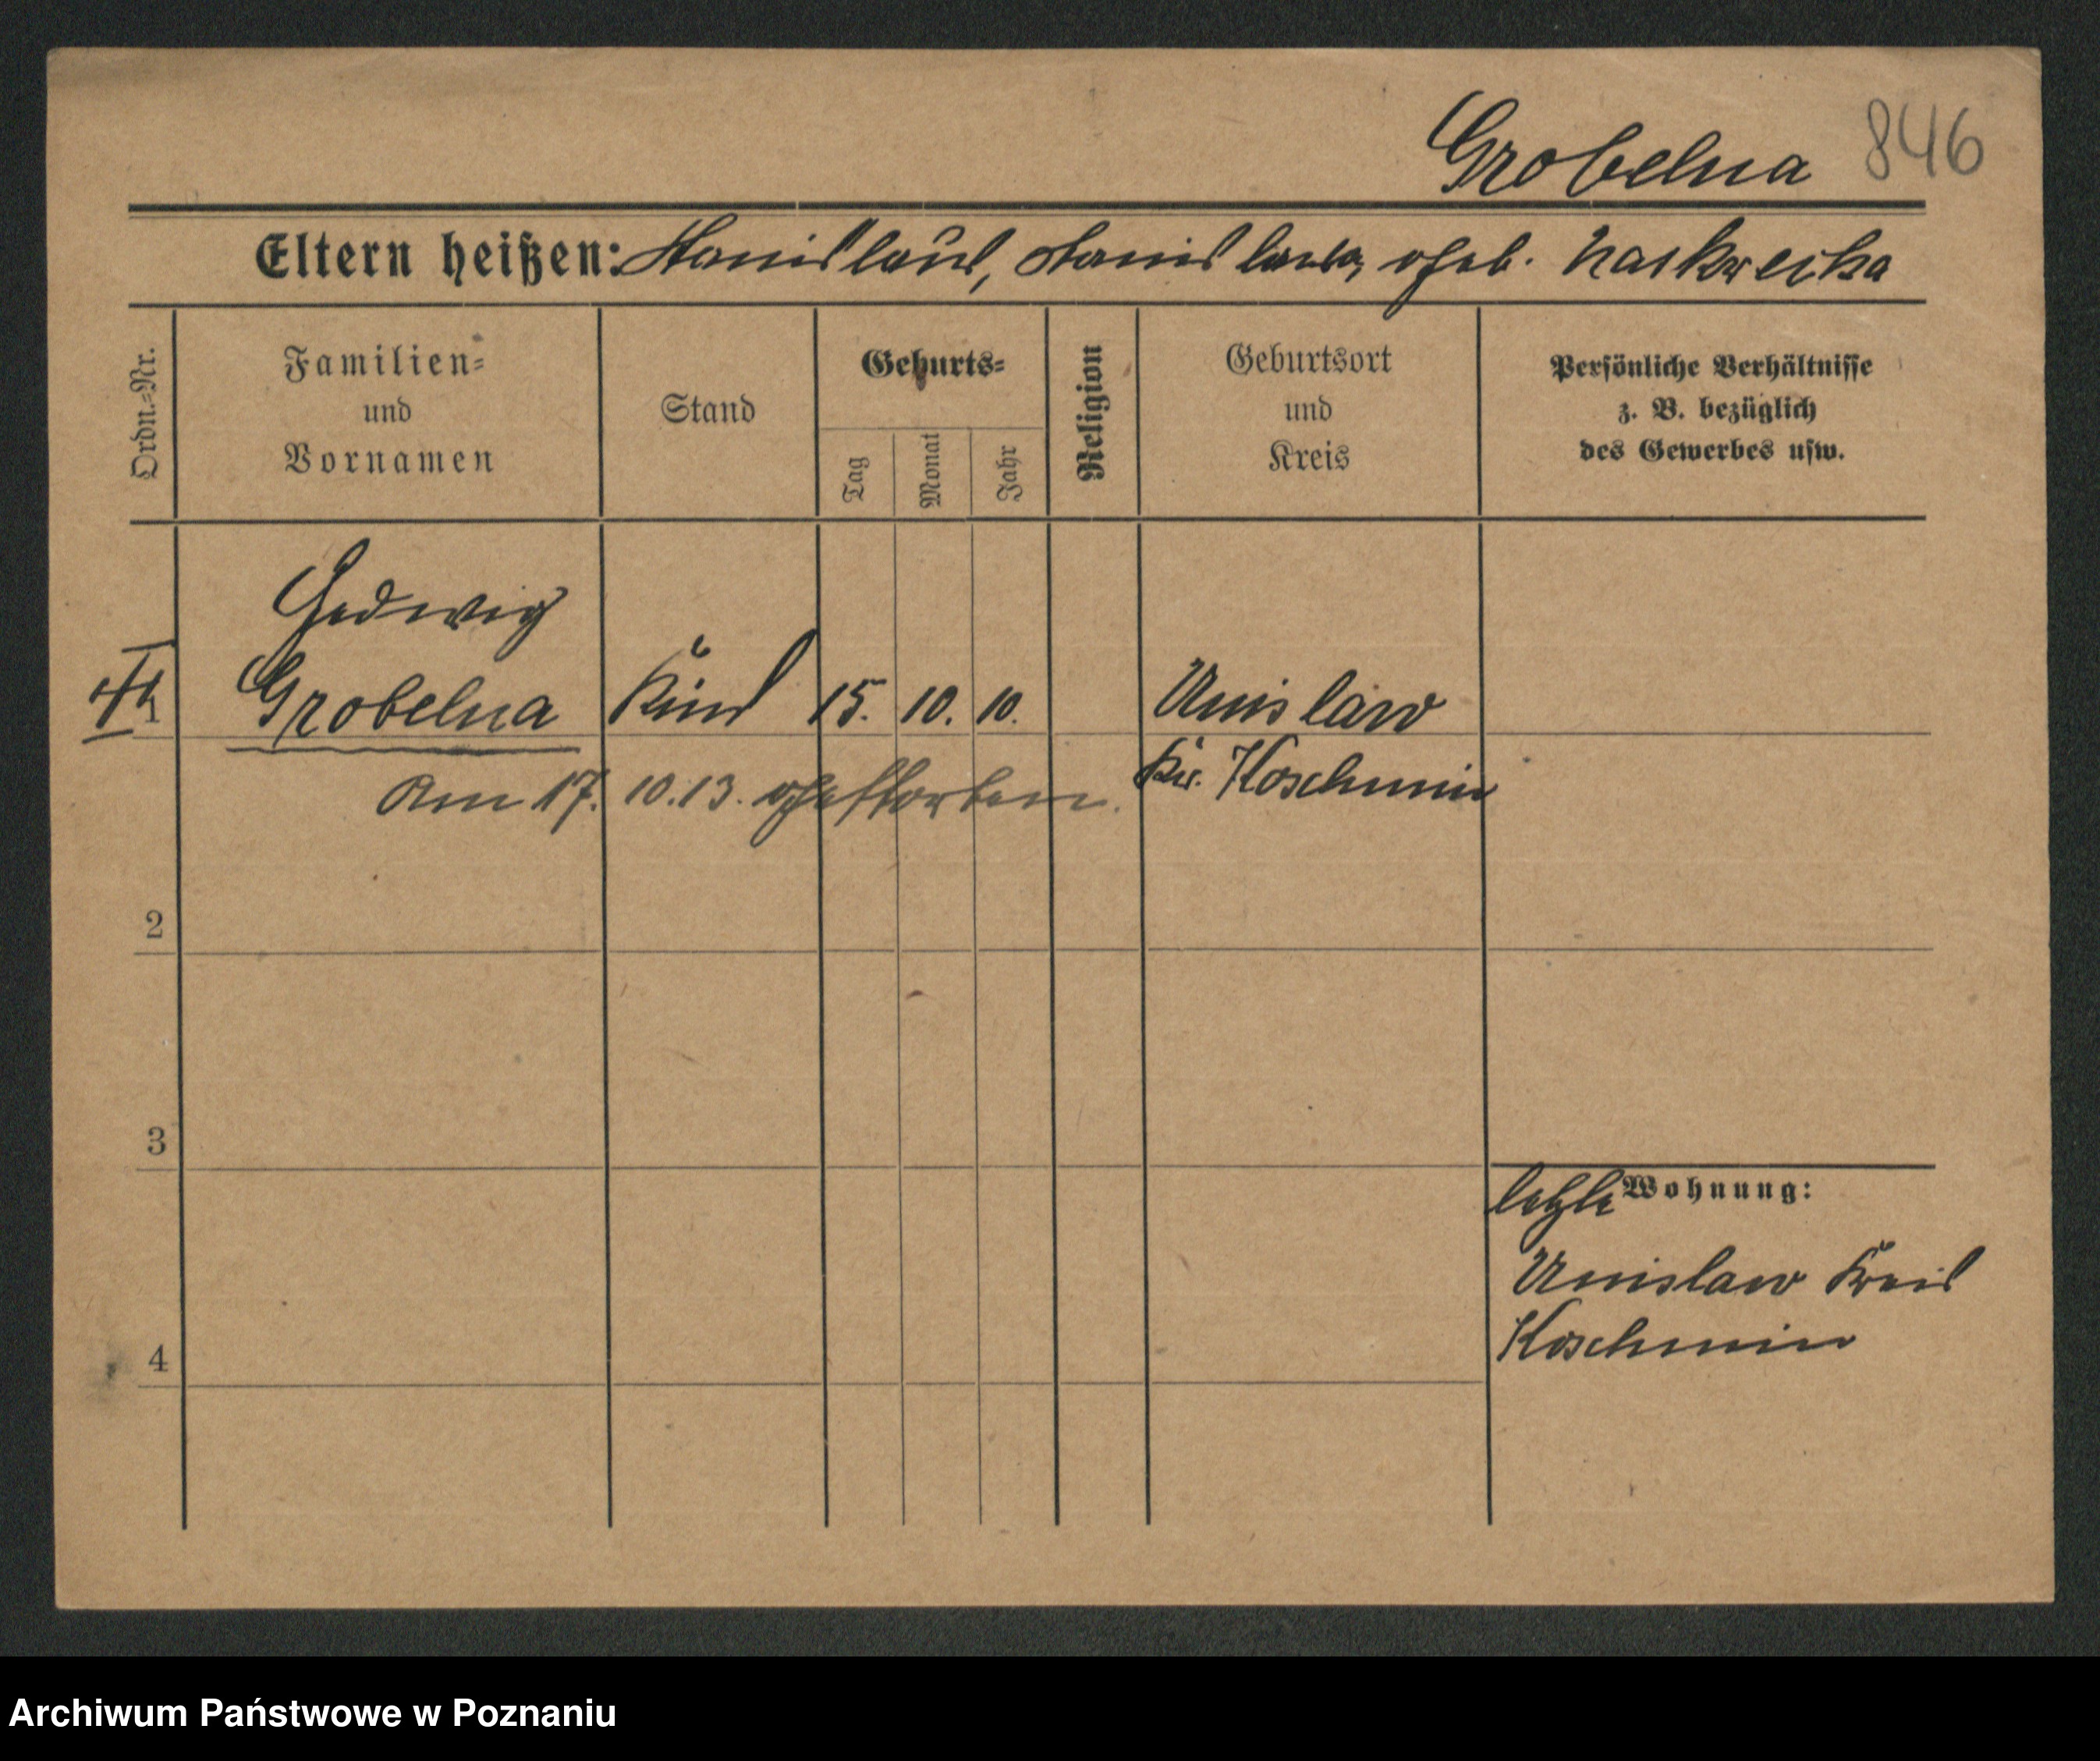 Grobelna 846
Eltern heißen: Stanislaus, Stanislawa, geb.
Ordn.-Nr.
Familien-
und
Vornamen
Stand
Geburts-
Tag
Monat
Jahr
Religion
Geburtsort
und
Kreis
Persönliche Verhältnisse
z. B. bezüglich
des Gewerbes usw.
Hedwig
1 Grobelna Kind 15. 10. 10. Unislaw
Kr. Koschmin
Am 17. 10. 13. gestorben.
2
3
letzte Wohnung:
Unislaw Kreis
Koschmin
4
Archiwum Państwowe w Poznaniu